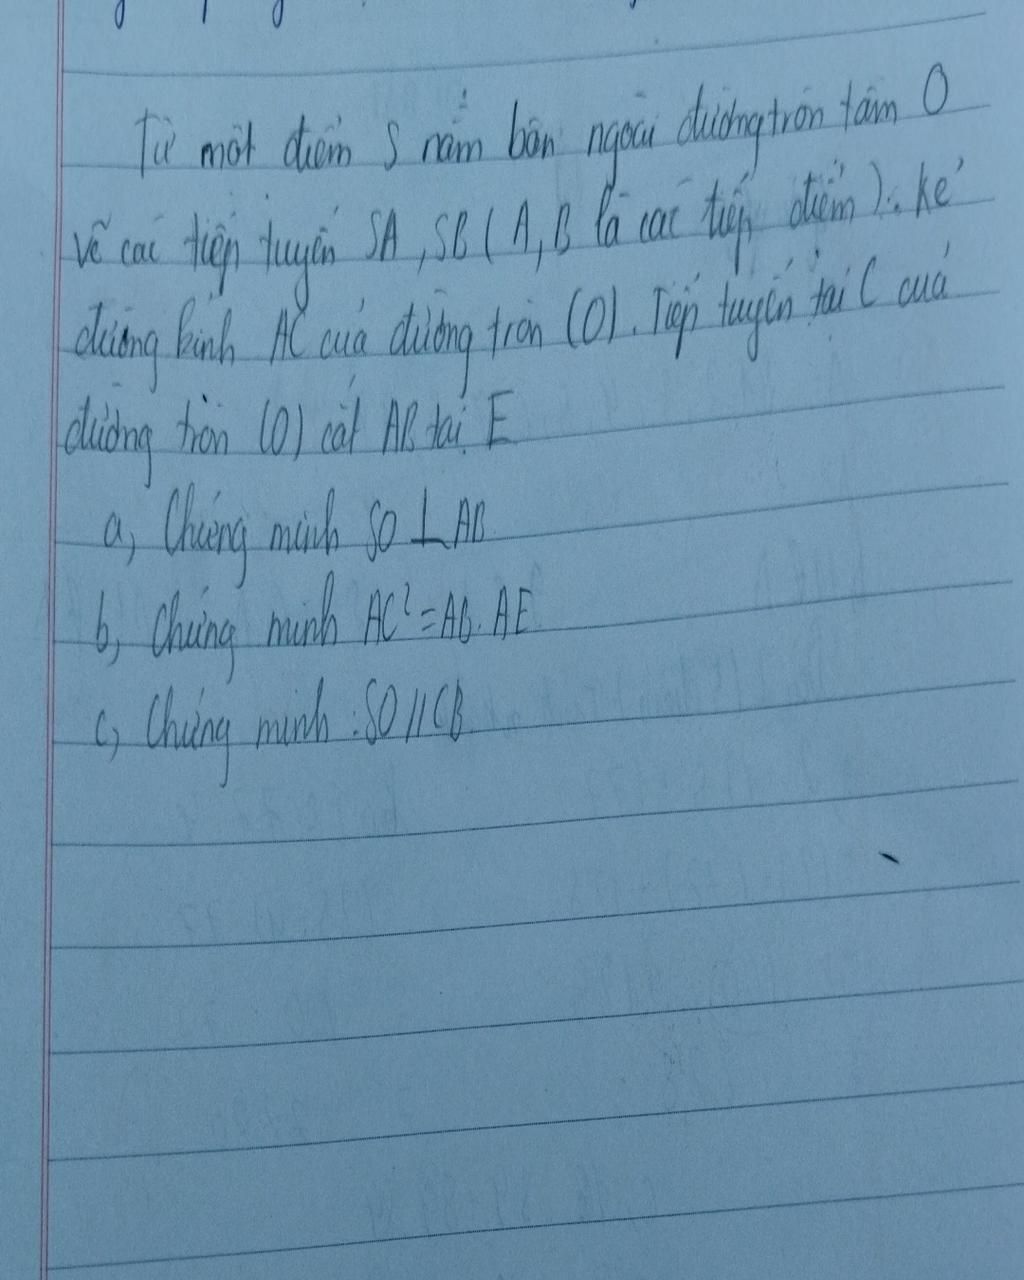 Từ một điểm S nằm bên ngoài đường tròn tâm O
vẽ các tiếp tuyến SA, SB (A, B là các tiếp điểm). Kẻ
đường kính AC của đường tròn (O). Tiếp tuyến tại C của
đường tròn (O) cắt AB tại E
a, Chứng minh SO ⊥ AB
b, Chứng minh AC² = AB. AE
c, Chứng minh: SO // CB